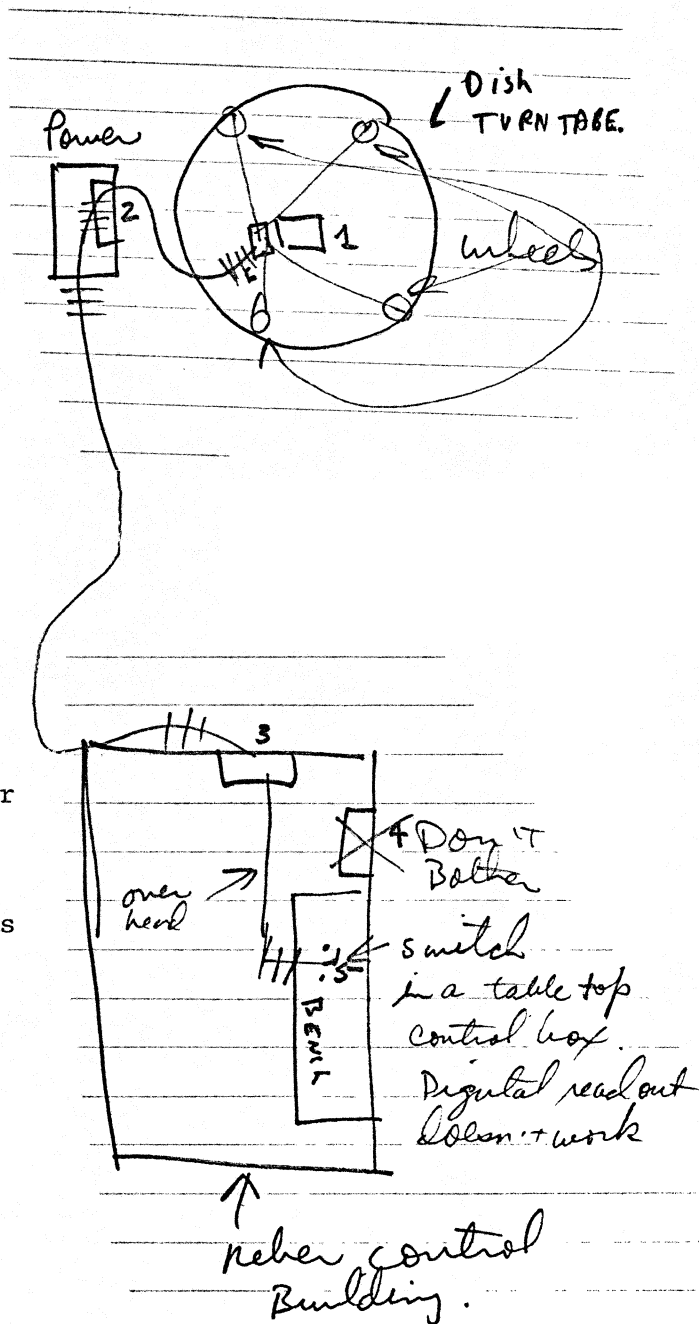 Dish
TURN TABE.
Power
2
1
wheels
r
3
4 Don't
Bother
over
head
s
switch
5
in a table top
control box.
BENCH
Digital readout
doesn't work
Reber control
Building.